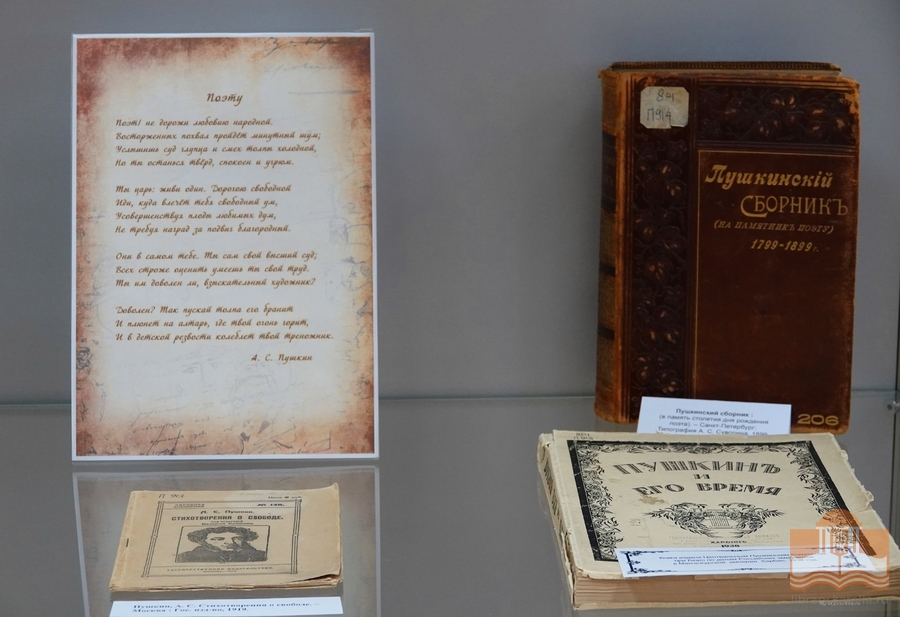 Поэту
Поэт! не дорожи любовию народной.
Восторженных похвал пройдёт минутный шум;
Услышишь суд глупца и смех толпы холодной,
Но ты останься твёрд, спокоен и угрюм.
Ты царь: живи один. Дорогою свободной
Иди, куда влечёт тебя свободный ум,
Усовершенствуя плоды любимых дум,
Не требуя наград за подвиг благородный.
Они в самом тебе. Ты сам свой высший суд;
Всех строже оценить умеешь ты свой труд.
Ты им доволен ли, взыскательный художник?
Доволен? Так пускай толпа его бранит
И плюет на алтарь, где твой огонь горит,
И в детской резвости колеблет твой треножник.
А. С. Пушкин
84
П914
Пушкинскій
Сборникъ
(на памятникъ поэту)
1799-1899 г.
206
Пушкинский сборник :
(в память столетия дня рождения
поэта). – Санкт-Петербург:
Типография А. С. Суворина, 1899
А. С. Пушкин.
СТИХОТВОРЕНИЯ О СВОБОДЕ.
ГОСУДАРСТВЕННОЕ ИЗДАТЕЛЬСТВО
Пушкин, А. С. Стихотворения о свободе. –
Москва : Гос. изд-во, 1919.
ПУШКИНЪ
И
ЕГО ВРЕМЯ
ХАРБИНЪ
Книга издана Центральным Пушкинским
при Бюро по делам Российских
в Маньчжурской империи. Харбин